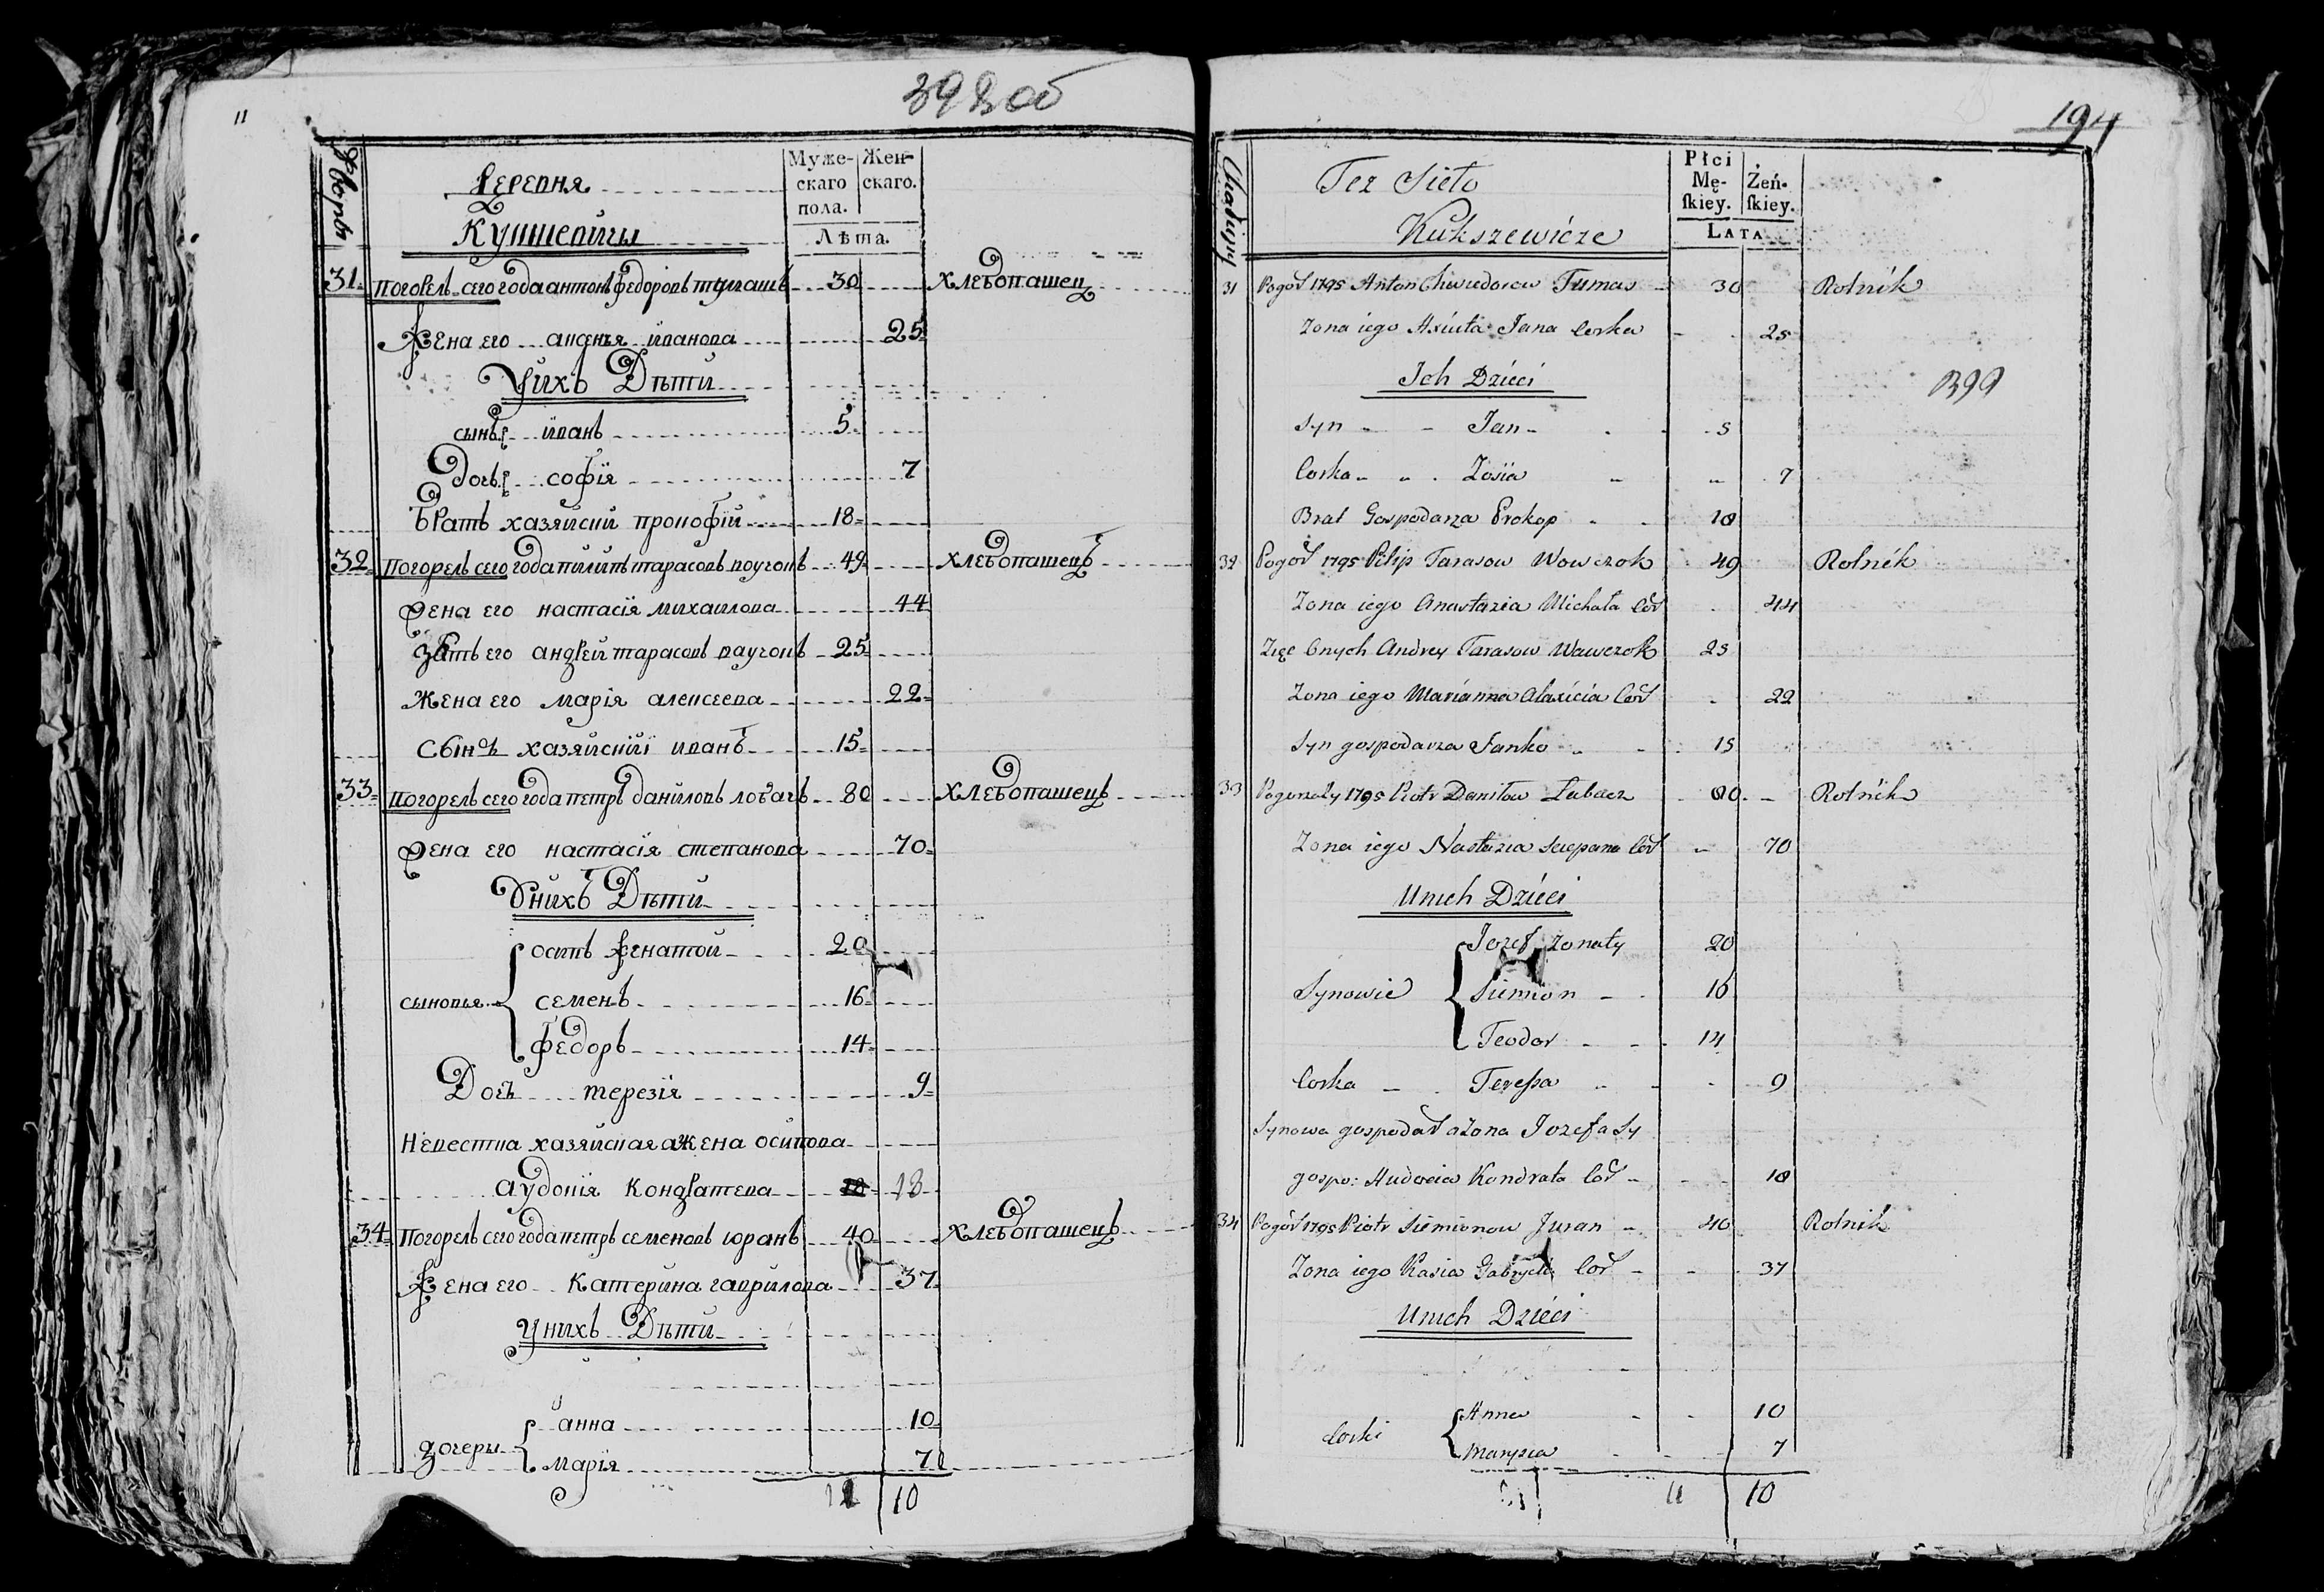 11
398 об
Дворъ
Деревня
Кушшевичы
Муже-
скаго
пола.
Жен-
скаго.
Лѣта.
31. погорелъ сего года антонъ федоровъ тумашъ 30 хлебопашец
Жена его аксенья иванова 25
У йхъ Дѣти
сынъ иванъ 5
Дочь софія 7
Братъ хазяйский прокофій 18
32 погорелъ сего года пилипъ тарасовъ воучокъ 49 хлебопашецъ
Жена его настасія михаилова 44
Зять его андрей тарасовъ воучокъ 25
Жена его марія алексеева 22
Сынъ хазяйский иванъ 15
33 погорелъ сего года петръ даниловъ лобачъ 80 хлебопашецъ
Жена его настасія степанова 70
У нихъ Дѣти
сыновья
осипъ женатой 20
семенъ 16
федоръ 14
Дочь терезія 9
Невестка хазяйская а жена осипова
аудотія кондратева 18
34 Погорелъ сего года петръ семеновъ юранъ 40 хлебопашецъ
Жена его катерина гаврилова 37
у нихъ Дѣти
дочеры
анна 10
марія 7
10
194
Też Sieło
Kukszewicze
Płci
Mę-
ſkiey.
Żeń-
ſkiey.
LATA
399
31 Pogor 1795 Anton Chwiedorow Tumas 30 Rolnik
Zona iego Axiuta Jana Corka 25
Ich Dzieci
Syn Jan 5
Corka Zosia 7
Brat Gospodarza Prokop 18
32 Pogor 1795 Pilip Tarasow Wowczok 49 Rolnik
Zona iego Anastazia Michała Cor 44
Zięc Onych Andrey Tarasow Wawczok 25
Zona iego Marianna Alaxicia Cor 22
Syn gospodarza Janko 15
33 Pogorzały 1795 Piotr Daniłow Łabacz 80 Rolnik
Zona iego Nastazia Sciepana Cor 70
U nich Dzieci
Synowie
Jozef zonaty 20
Siemion 16
Teodor 14
Corka Teressa 9
Synowa gospodar a Zona Jozefa Sy
gospo: Audocia Kondrata Cor 18
34 Pogor 1795 Piotr Siemionow Juran 40 Rolnik
Zona iego Kasia Cor 37
U nich Dzieci
Corki
Anna 10
Marysia 7
11 10